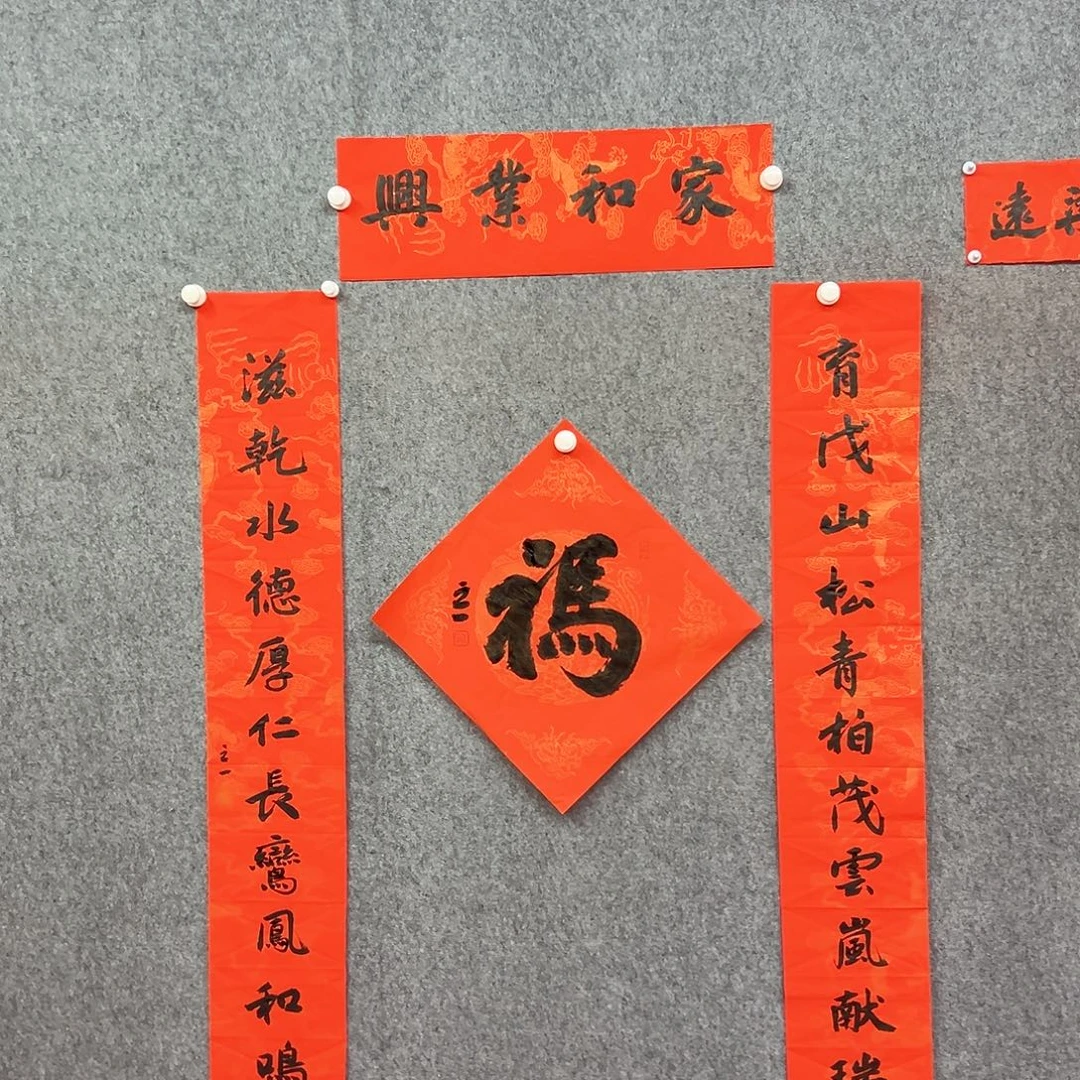 家和業興
育戊山松青柏茂雲嵐献瑞
滋乾水德厚仁長鸞鳳和鳴
之一
福
之一
遠